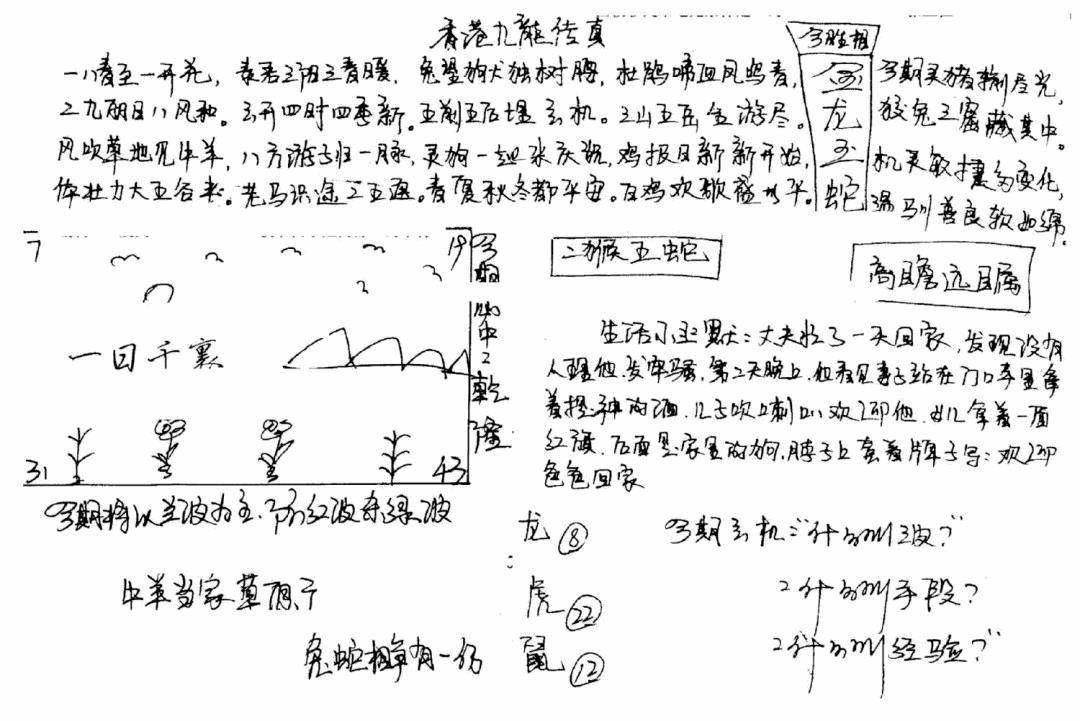 香港九龍传真
一八春至一开花，
三阳三春暖，兔望狗犬独树腾，杜鹃啼血凤鸟春，
二九朝日八风和。玄开四时四季新。五前五后埋玄机。三山五岳全游尽。
风吹草地见牛羊，八方游子归一脉，灵狗一出来庆祝，鸡报日新新开始，
体壮力大五谷丰。老马识途二五遥。春夏秋冬都平安。百鸡欢歌盛水平。
今胜相
金
龙
玉
蛇
今期灵猪捌尽光，
狡兔三窟藏其中。
机灵敏捷多变化，
温驯善良软如绵。
7
19
一日千裏
31
43
今期
中2
乾
隆
今期将以兰波为主.防红波杀绿波
二猴五蛇
高瞻远瞩
生活小幽默：丈夫忙了一天回家，发现没有
人理他.发牢骚，第2天晚上，他看见妻子站在门口手里拿
着提神的酒.儿子吹喇叭欢迎他.女儿拿着一面
红旗.后面是家里的狗，脖子上套着牌子写：欢迎
爸爸回家
龙 ⑧
虎 ㉒
鼠 ⑫
牛羊当家草雨干
兔蛇相争有一伤
今期玄机：“什么叫三波？
2什么叫手段？
2什么叫经验？”